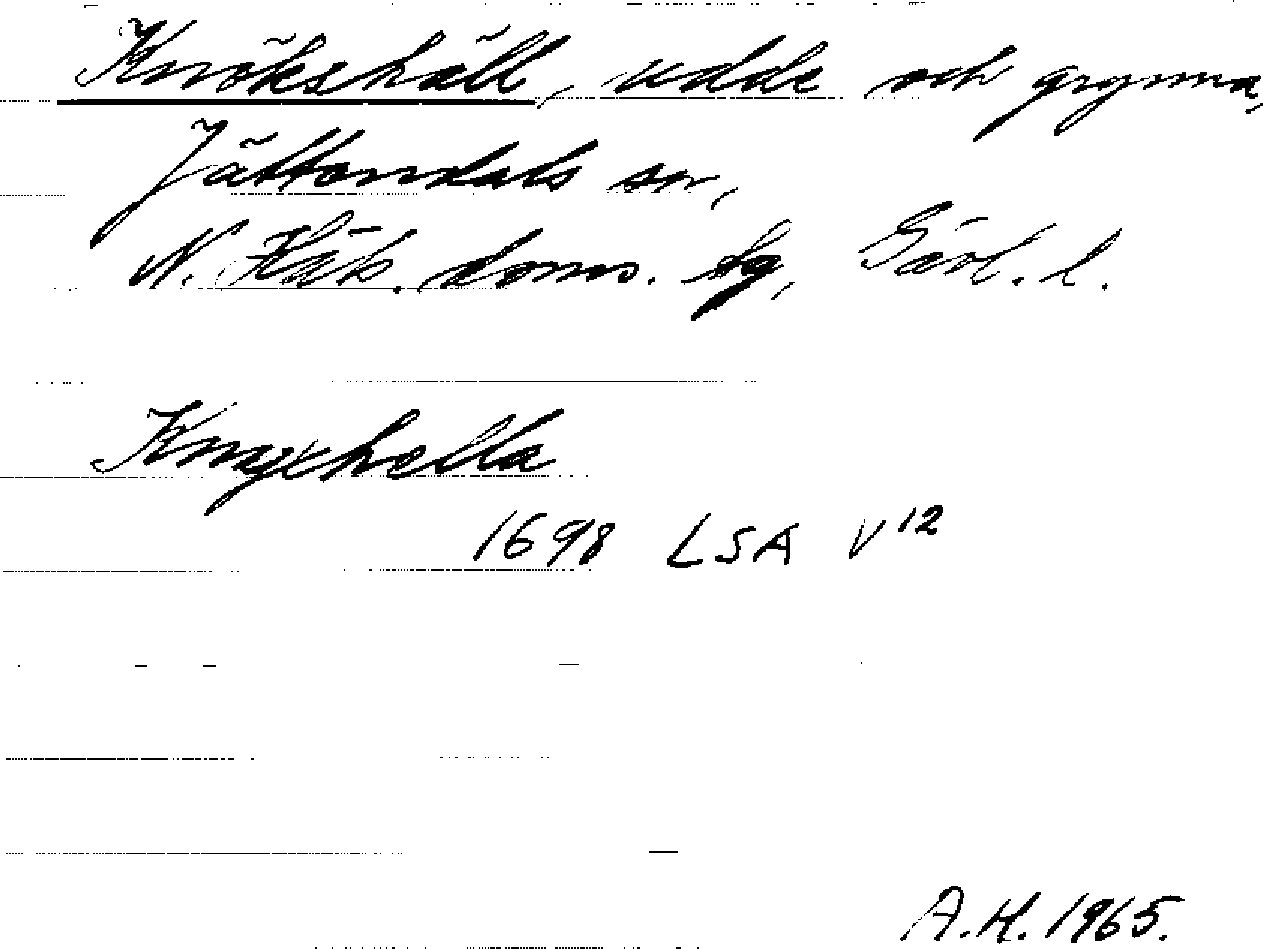 Knökshäll, udde och grynna,
Jättendals sn,
N. Häls. doms. tg, Gävl. l.
Knyxhella
1698 LSA V¹²
A.H. 1965.